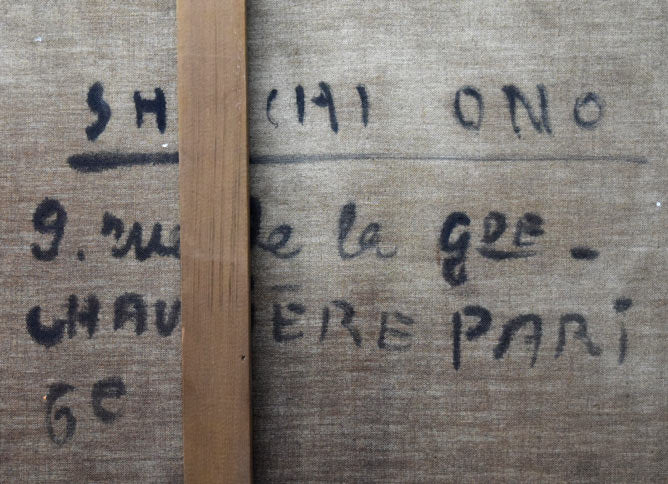 SH CHI ONO
9. rue de la gde -
CHAU IERE PARI
6e